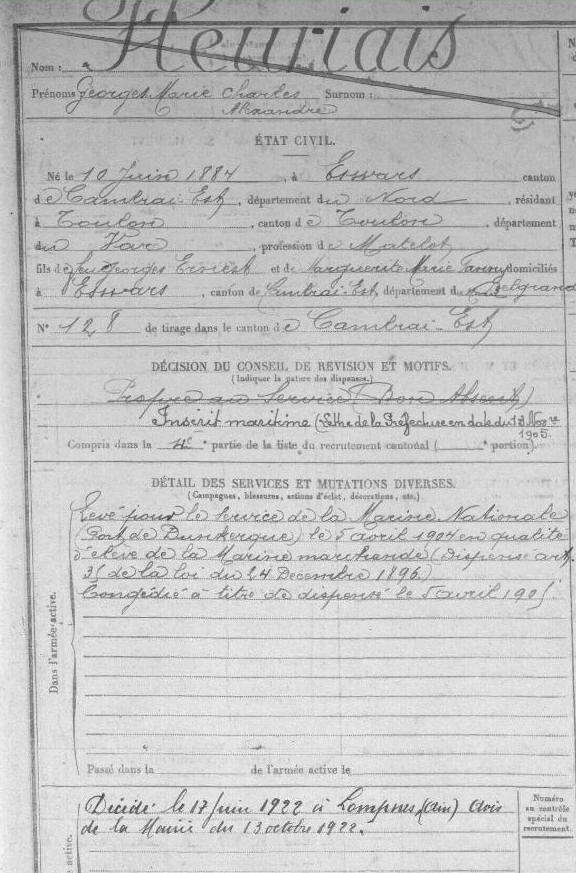 Nom : Heuriais
Prénoms Georges Marie Charles Surnom :
Alexandre
ÉTAT CIVIL.
Né le 10 Juin 1884, à Eswars canton
de Cambrai-Est, département du Nord, résidant
à Toulon, canton de Toulon, département
du Var, profession de Matelot
fils de feu Georges Ernest et de Marguerite Marie Fanny domiciliés
à Eswars, canton de Cambrai-Est département du Belgrand
N° 128 de tirage dans le canton de Cambrai-Est
DÉCISION DU CONSEIL DE REVISION ET MOTIFS.
(Indiquer la nature des dispenses.)
Propre au Service (Bon Absent)
Inscrit maritime (Lettre de la Préfecture en date du 13 Nov^re
1905.
Compris dans la 4e partie de la liste du recrutement cantonal ( portion).
DÉTAIL DES SERVICES ET MUTATIONS DIVERSES.
(Campagnes, blessures, actions d'éclat, décorations, etc.)
Levé pour le service de la Marine Nationale
(Port de Dunkerque) le 5 avril 1904 en qualité
d'élève de la Marine marchande (Dispensé art.
de la loi du 24 Décembre 1896.)
Congédié à titre de dispensé le 5 avril 1905.
Dans l'armée active.
Passé dans la de l'armée active le
Décédé le 17 Juin 1922 à Lompnes (Ain) Avis
de la Mairie du 13 octobre 1922.
Numéro
au contrôle
spécial du
recrutement.
active.